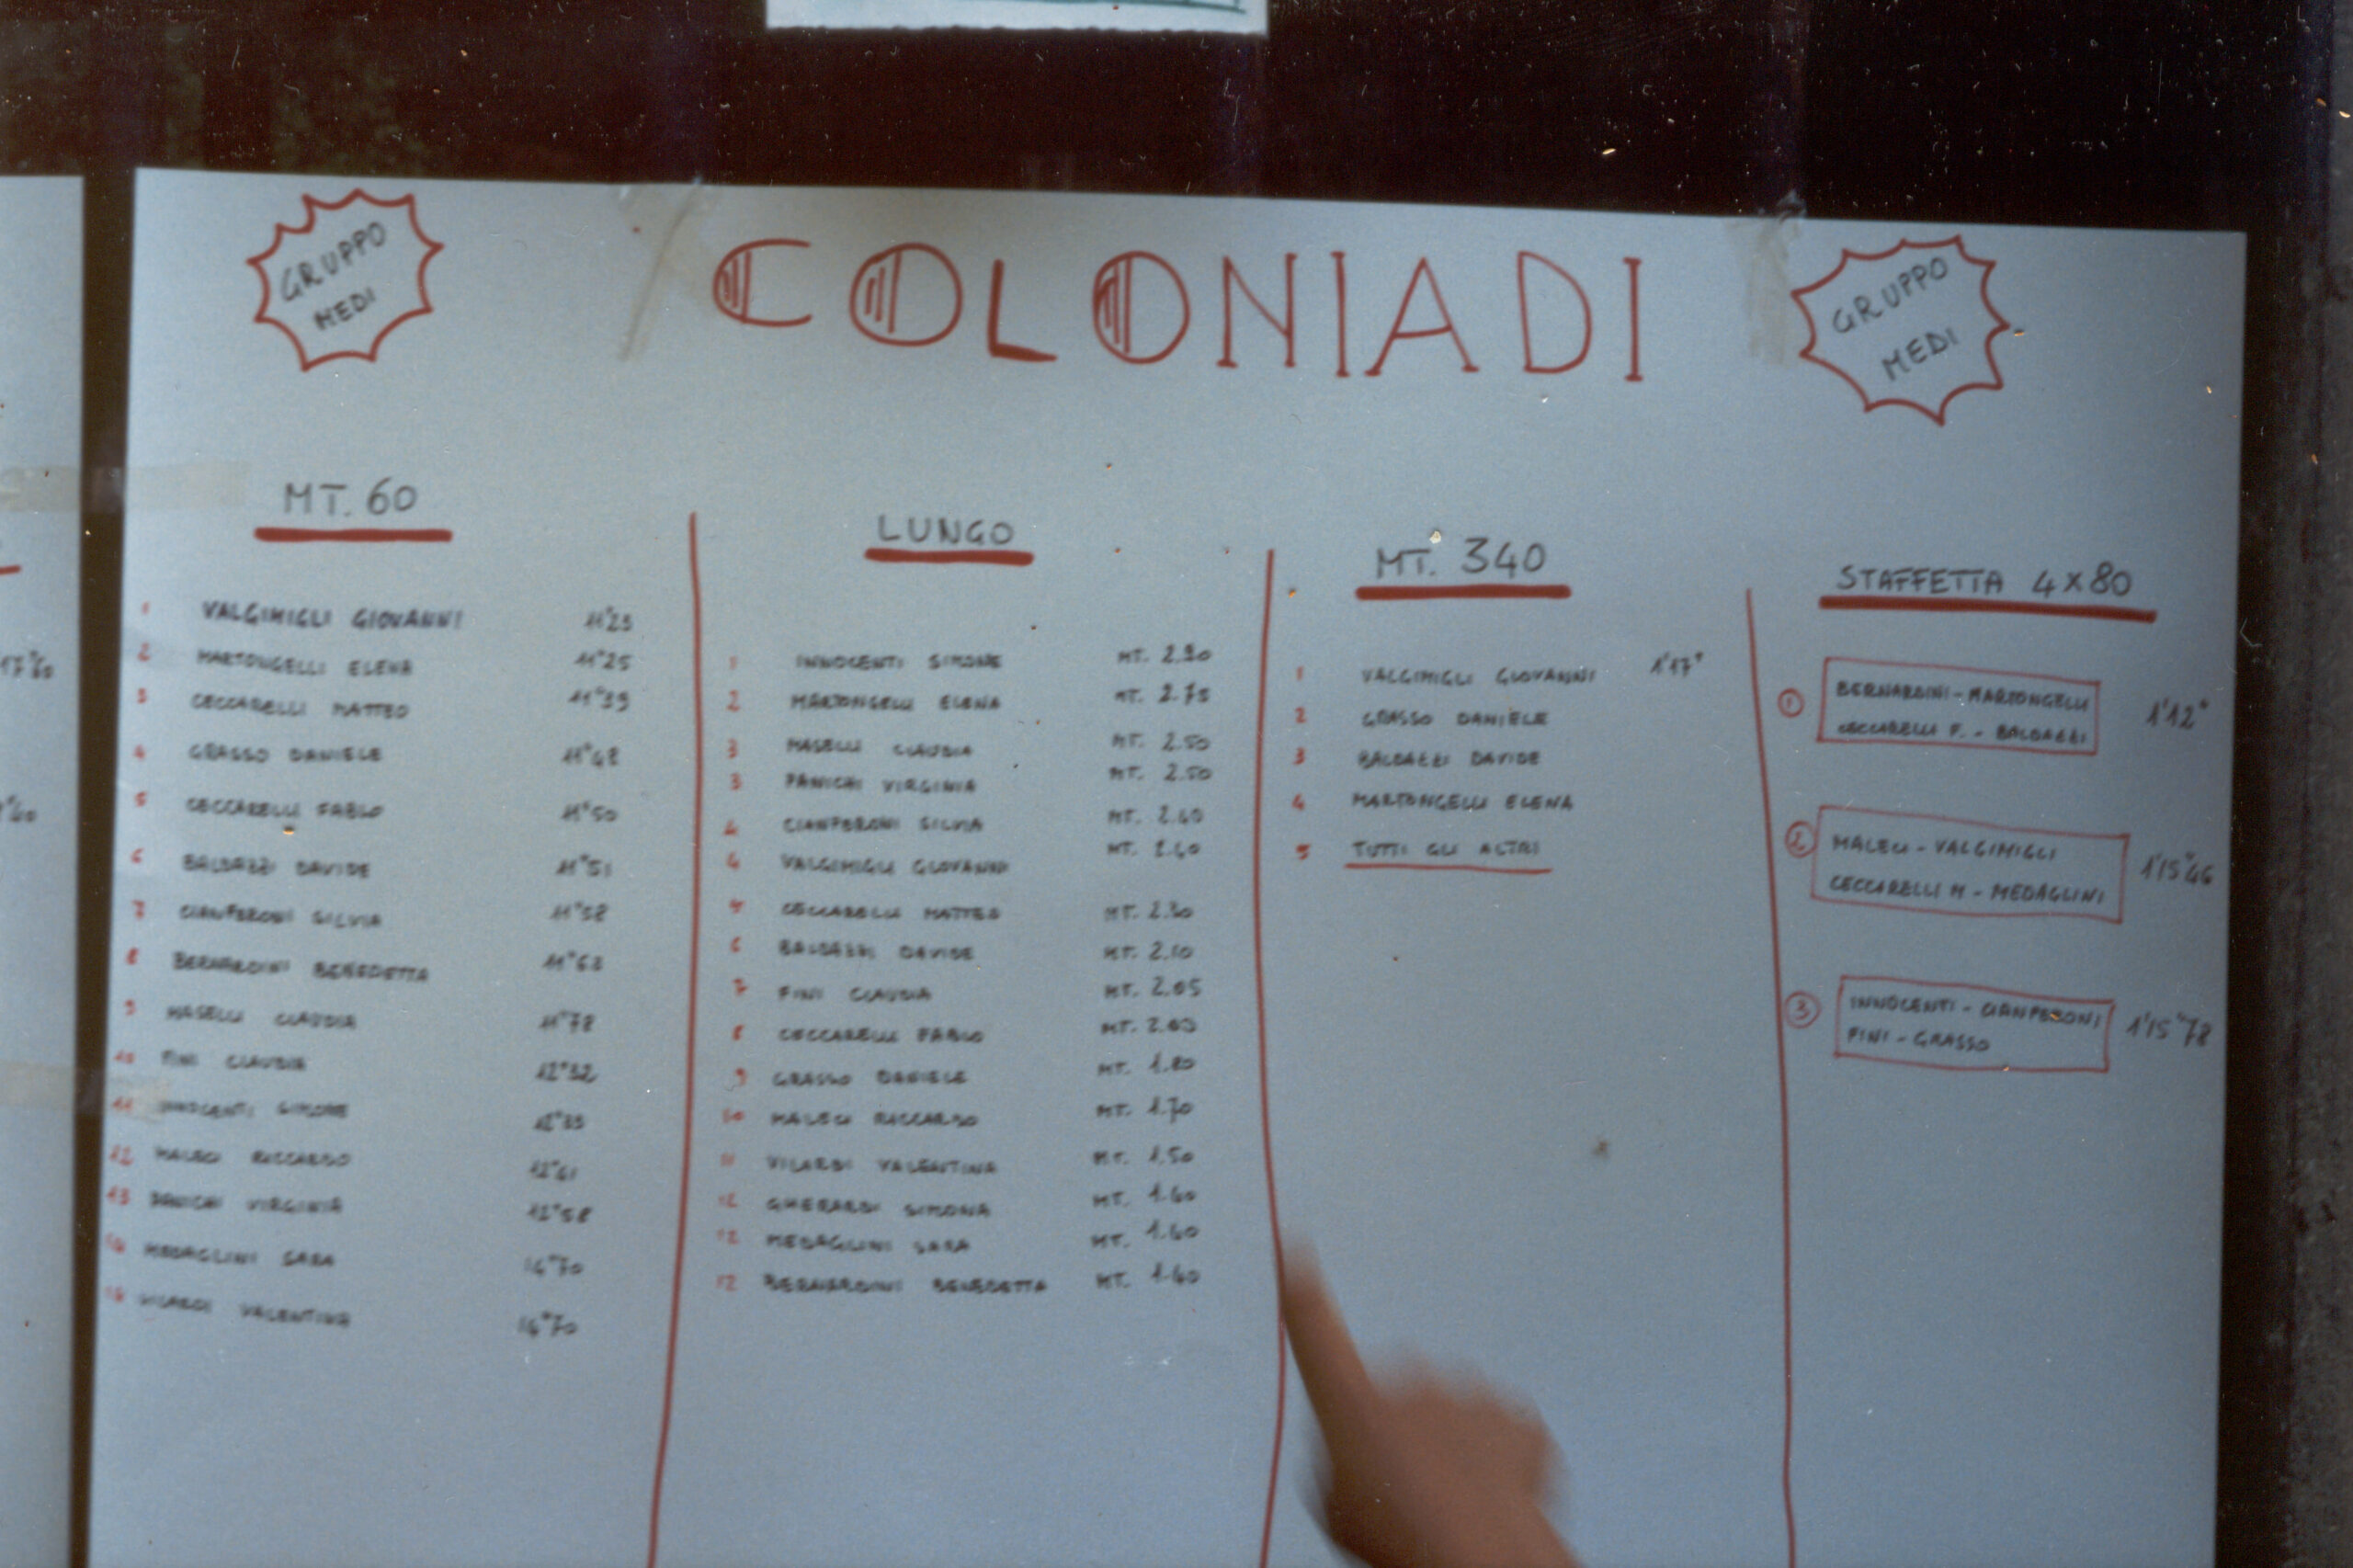 GRUPPO
MEDI
COLONIADI
GRUPPO
MEDI
MT. 60
1 VALGIMIGLI GIOVANNI 11"23
2 MARTONGELLI ELENA 11"25
3 CECCARELLI MATTEO 11"39
4 GRASSO DANIELE 11"48
5 CECCARELLI FABIO 11"50
6 BALDAZZI DAVIDE 11"51
7 CIANFERONI SILVIA 11"58
8 BERNARDINI BENEDETTA 11"63
9 MASELLI CLAUDIA 11"78
10 FINI CLAUDIA 12"32
11 INNOCENTI SIMONE
12 MALECI RICCARDO
13 PANICHI VIRGINIA 12"58
MEDAGLINI SARA 14"70
VILARDI VALENTINA 14"70
LUNGO
1 INNOCENTI SIMONE MT. 2.90
2 MARTONGELLI ELENA MT. 2.75
3 MASELLI CLAUDIA MT. 2.50
3 PANICHI VIRGINIA MT. 2.50
4 CIANFERONI SILVIA MT. 2.40
4 VALGIMIGLI GIOVANNI MT. 2.40
5 CECCARELLI MATTEO MT. 2.30
6 BALDAZZI DAVIDE MT. 2.10
7 FINI CLAUDIA MT. 2.05
8 CECCARELLI FABIO MT. 2.00
9 GRASSO DANIELE MT. 1.80
10 MALECI RICCARDO MT. 1.70
11 VILARDI VALENTINA MT. 1.50
12 GHERARDI SIMONA MT. 1.40
12 MEDAGLINI SARA MT. 1.40
12 BERNARDINI BENEDETTA MT. 1.40
MT. 340
1 VALGIMIGLI GIOVANNI 1'17"
2 GRASSO DANIELE
3 BALDAZZI DAVIDE
4 MARTONGELLI ELENA
5 TUTTI GLI ALTRI
STAFFETTA 4x80
1 BERNARDINI - MARTONGELLI
CECCARELLI F. - BALDAZZI 1'12"
2 MALECI - VALGIMIGLI
CECCARELLI M - MEDAGLINI 1'15"46
3 INNOCENTI - CIANFERONI
FINI - GRASSO 1'15"78